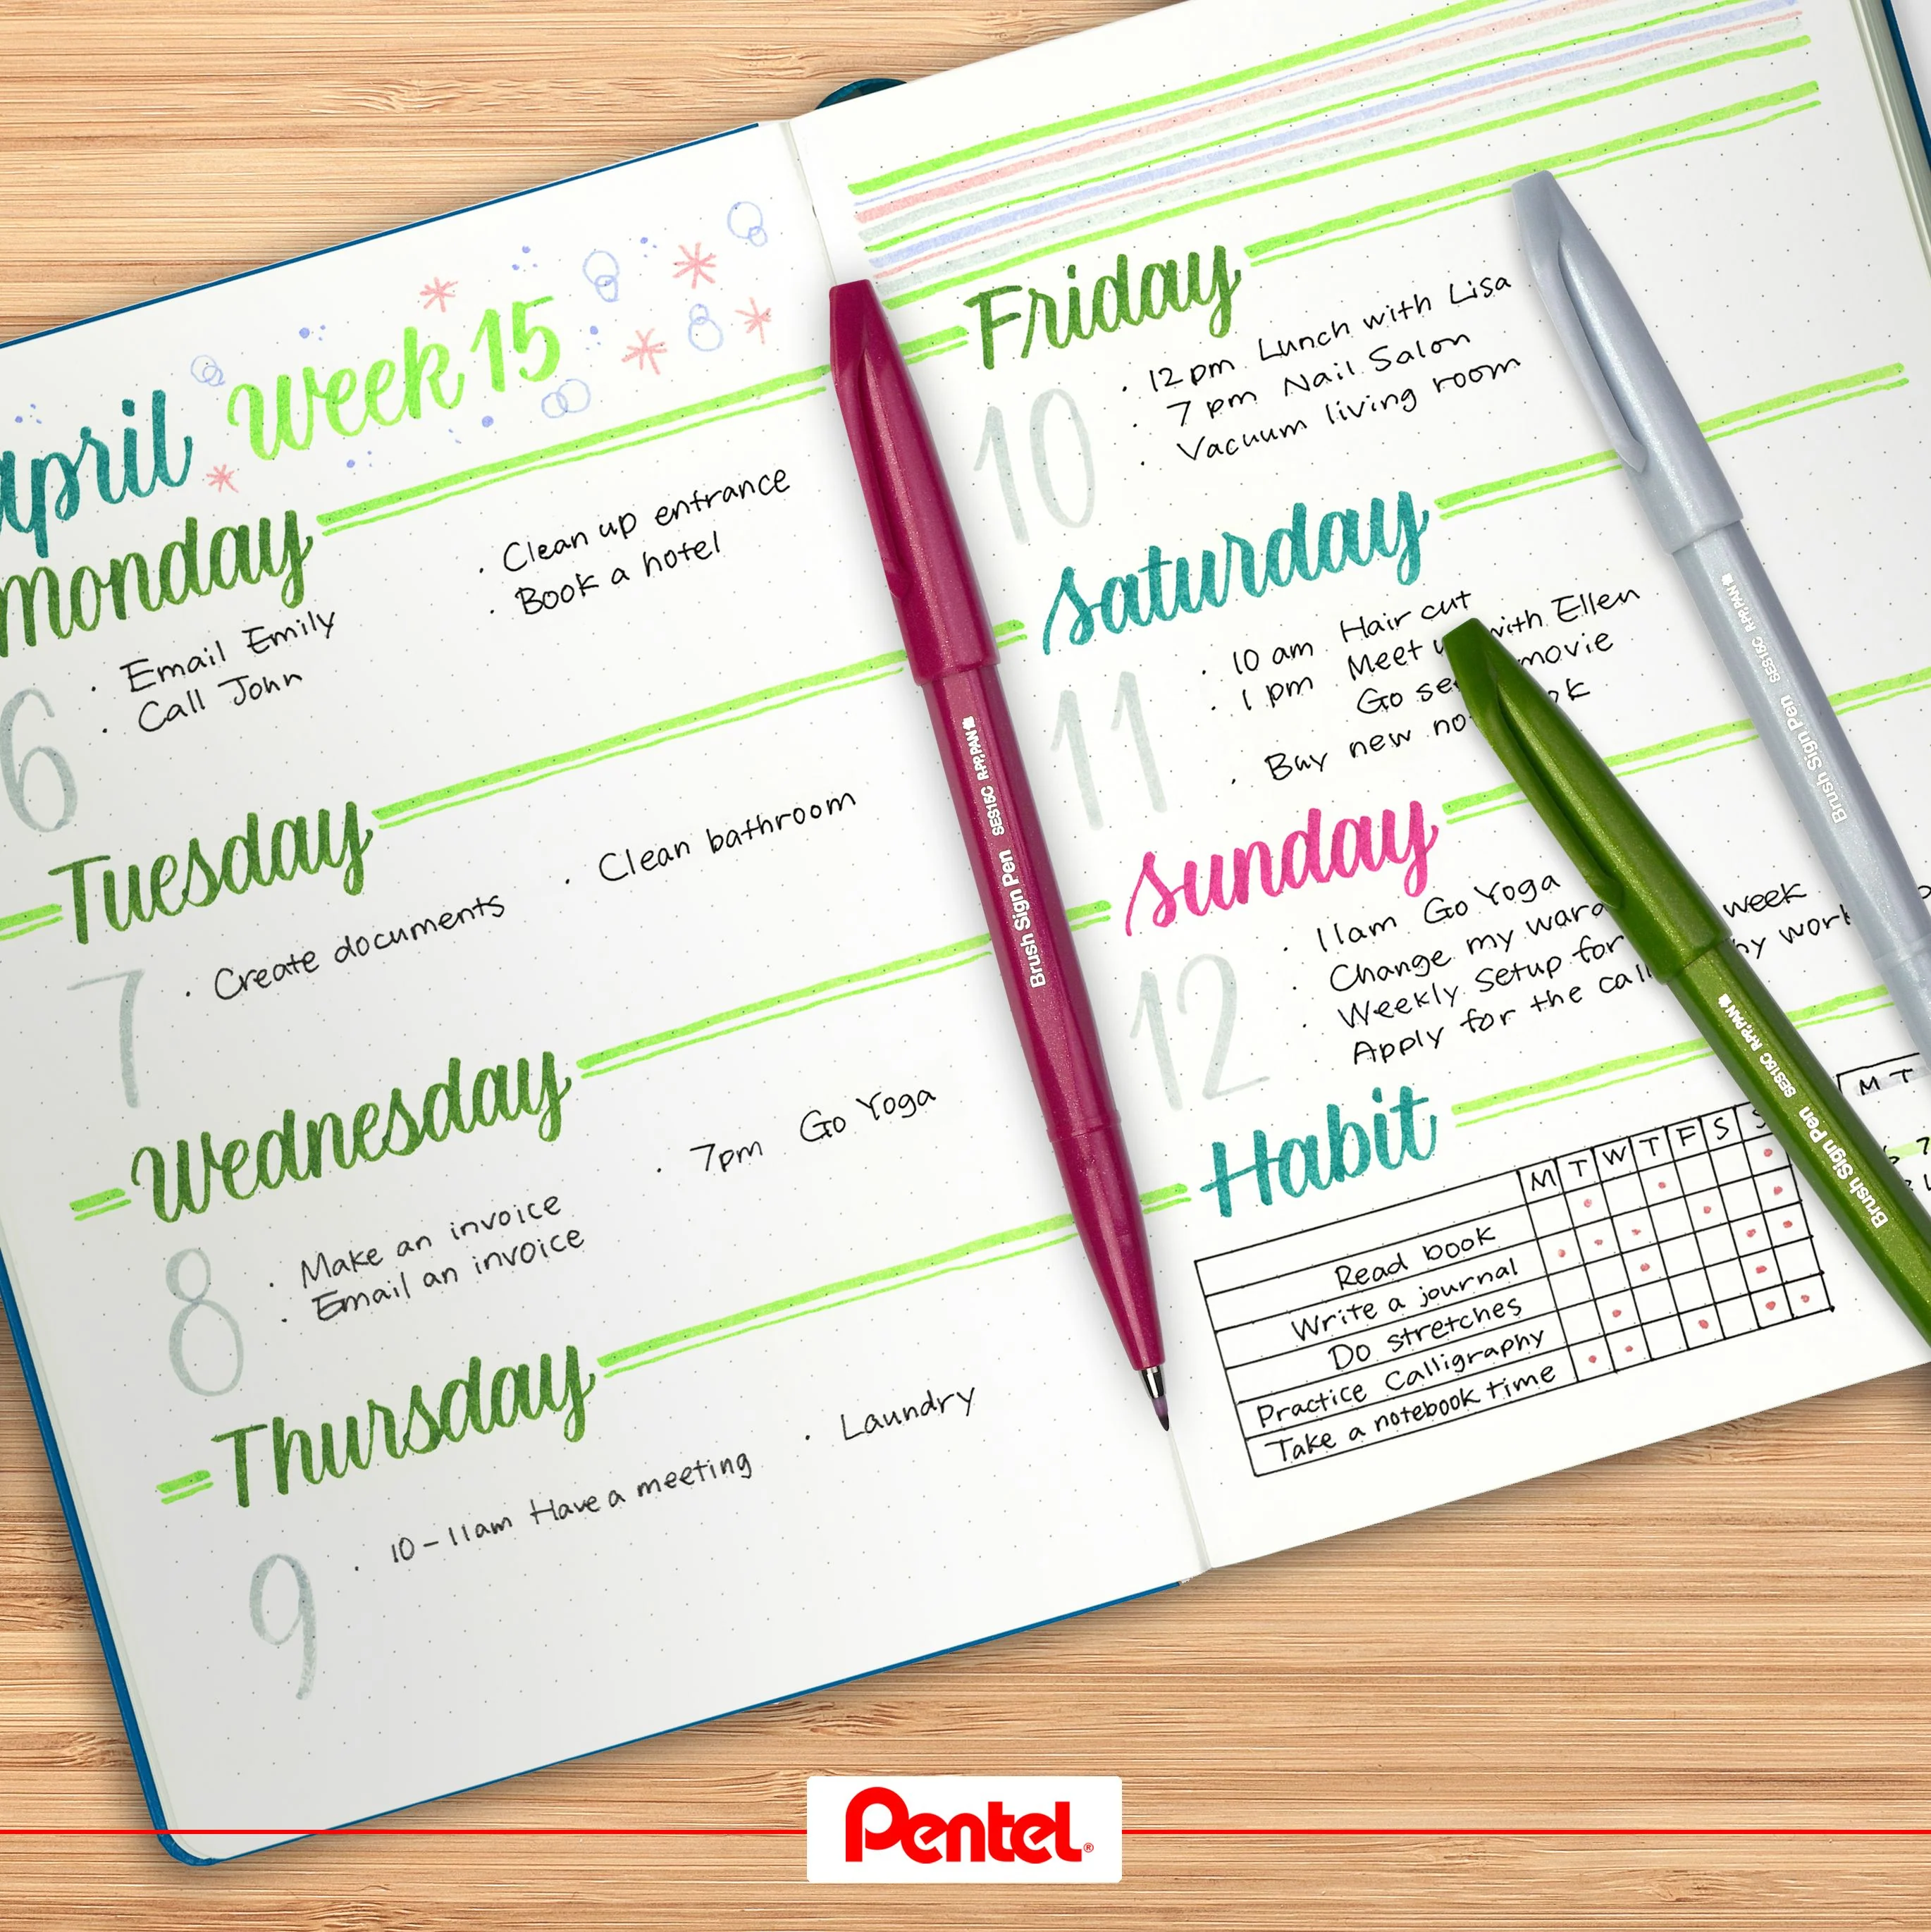 april week 15
monday
6
· Email Emily
· Call John
· Clean up entrance
· Book a hotel
Tuesday
7
· Create documents
· Clean bathroom
Wednesday
8
· Make an invoice
· Email an invoice
· 7pm Go Yoga
Thursday
9
· 10-11am Have a meeting
· Laundry
Friday
10
· 12pm Lunch with Lisa
· 7pm Nail Salon
· Vacuum living room
saturday
11
· 10 am Hair cut
· 1 pm Meet with Ellen
Go movie
· Buy new
sunday
12
· 11am Go Yoga
· Change my week
· Weekly Setup for my work
Apply for the
Habit
M T W T F S S
Read book
Write a journal
Do stretches
Practice Calligraphy
Take a notebook time
M T
7
Brush Sign Pen SES15C R.PP,PAN
Brush Sign Pen SES15C R.PP,PAN
Brush Sign Pen SES15C R.PP,PAN
Pentel®